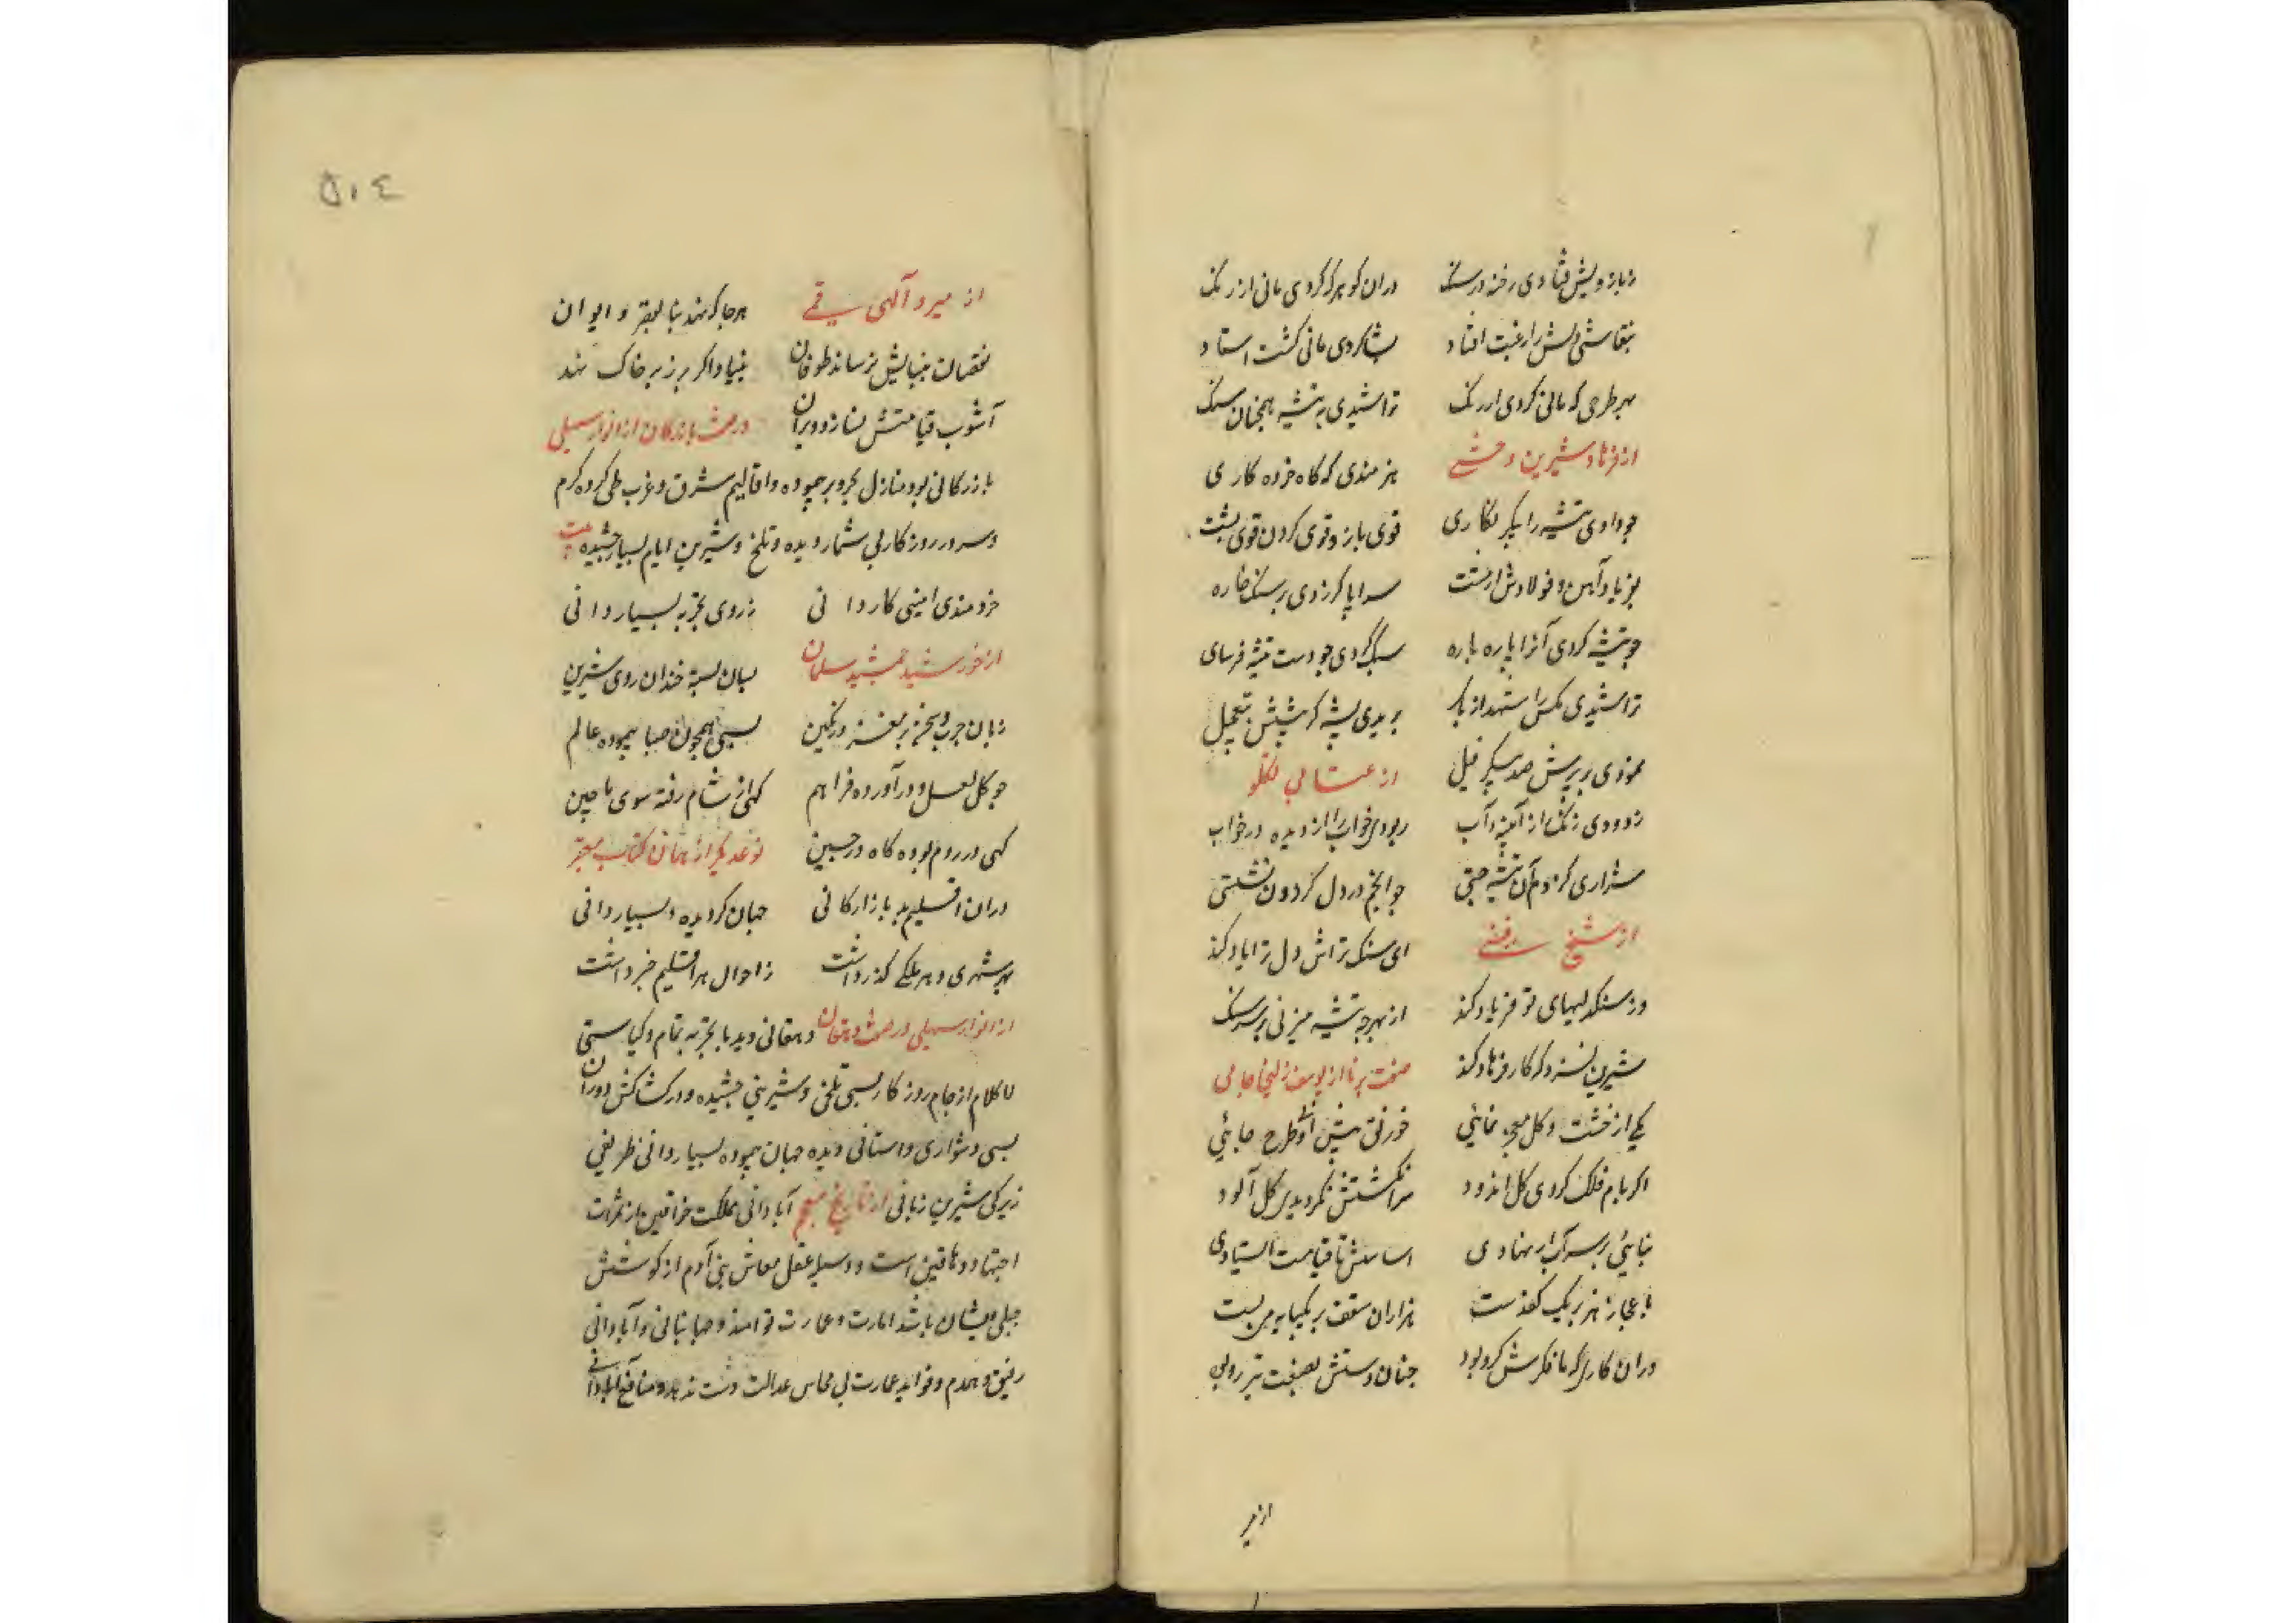 زبازویش فتادی رخنه در سنک دران کوهر که کردی مانی ارژنک
بنقاشی دلش را رغبت افتاد بشاکردی مانی کشت استاد
بهر طرحی که مانی کردی ارژنک تراشیدی به تیشه همچنان سنک
از فرهاد شیرین وحشی هنرمندی که کاه خرده کاری
چو دادی تیشه را پیکر نکاری قوی بازو قوی کردن قوی پشت
بفریاد آهن و فولادش از مشت سراپا کر زدی بر سنک خاره
چو تیشه کردی آنرا پاره پاره سبک کردی چو دست تیشه فرسای
تراشیدی مکس را شهد از پای بریدی پشه کر تیشش بتعجیل
نمودی بر پرش صد پیکر فیل از عتابی تکلو
زدودی زنک از آئینه آب ربودی خواب را از دیده در خواب
شراری کز دم آن تیشه جستی چو انجم در دل کردون نشستی
از شیخ رفیعی ای سنک تراش دل ترا یاد کند
وز سنکدلیهای تو فریاد کند از بهر چه تیشه میزنی بر سر سنک
شیرین نسزد که کار فرهاد کند صفت بنا از یوسف زلیخا جامی
یکی از خشت و کل معجز نمائی خورنق پیش او طرح جائی
اکر بام فلک کردی کل اندود سر انکشتش نکردیدی کل آلود
بنائی بر سر آب ار نهادی اساسش تا قیامت ایستادی
باعجاز هنر بر یک کف دست هزاران سقف بر یکپایه می بست
دران کاری که مانی فکرش کرد بود چنان دستش بصنعت تیز رو بود
از میر
۵۰٤
از میر والهی قمی هرجا که نهد بنا بقصر و ایوان
نقصان ببنایش نرساند طوفان بنیاد اکر بر زبر خاک نهد
آشوب قیامتش نسازد ویران در صفت بازرکان از انوار سهیلی
بازرکانی بود منازل بحر و بر پیموده و اقالیم شرق و غرب طی کرده کرم
و سرد روزکار بی شمار دیده و تلخ و شیرین ایام بسیار چشیده بیت
خردمندی امینی کاردانی ز روی تجربه بسیار دانی
از خورشید جمشید سلمان بسان پسته خندان روی شیرین
زبان چرب و سخن پر مغز و رنکین بسی همچون صبا پیموده عالم
چو کل لعل و در آورده فراهم کهی از شام رفته سوی ماچین
کهی در روم بوده کاه در چین نوعدیکر از همان کتاب معتبر
دران اقلیم بد بازارکانی جهان کردیده و بسیار دانی
بهر شهری و هر ملکی کذر داشت ز احوال هر اقلیم خبر داشت
از انوار سهیلی در صفت دهقان دهقانی دید با تجربه تمام و کیاستی
لا کلام از جام روزکار بسی تلخی و شیرینی چشیده و در کشاکش دوران
بسی دشواری و آسانی دیده جهان پیموده بسیار دانی ظریفی
زیرکی شیرین زبانی از تاریخ معجم آبادانی مملکت خواقین از ثمرات
اجتهاد دهاقین است و وسیله عقل معاش بنی آدم از کوشش
جبلی ایشان باشد امارت و عمارت توامند و جهانبانی و آبادانی
رفیق و همدم و فواید عمارت بی محاس عدالت دست ندهد و منافع آبادانی